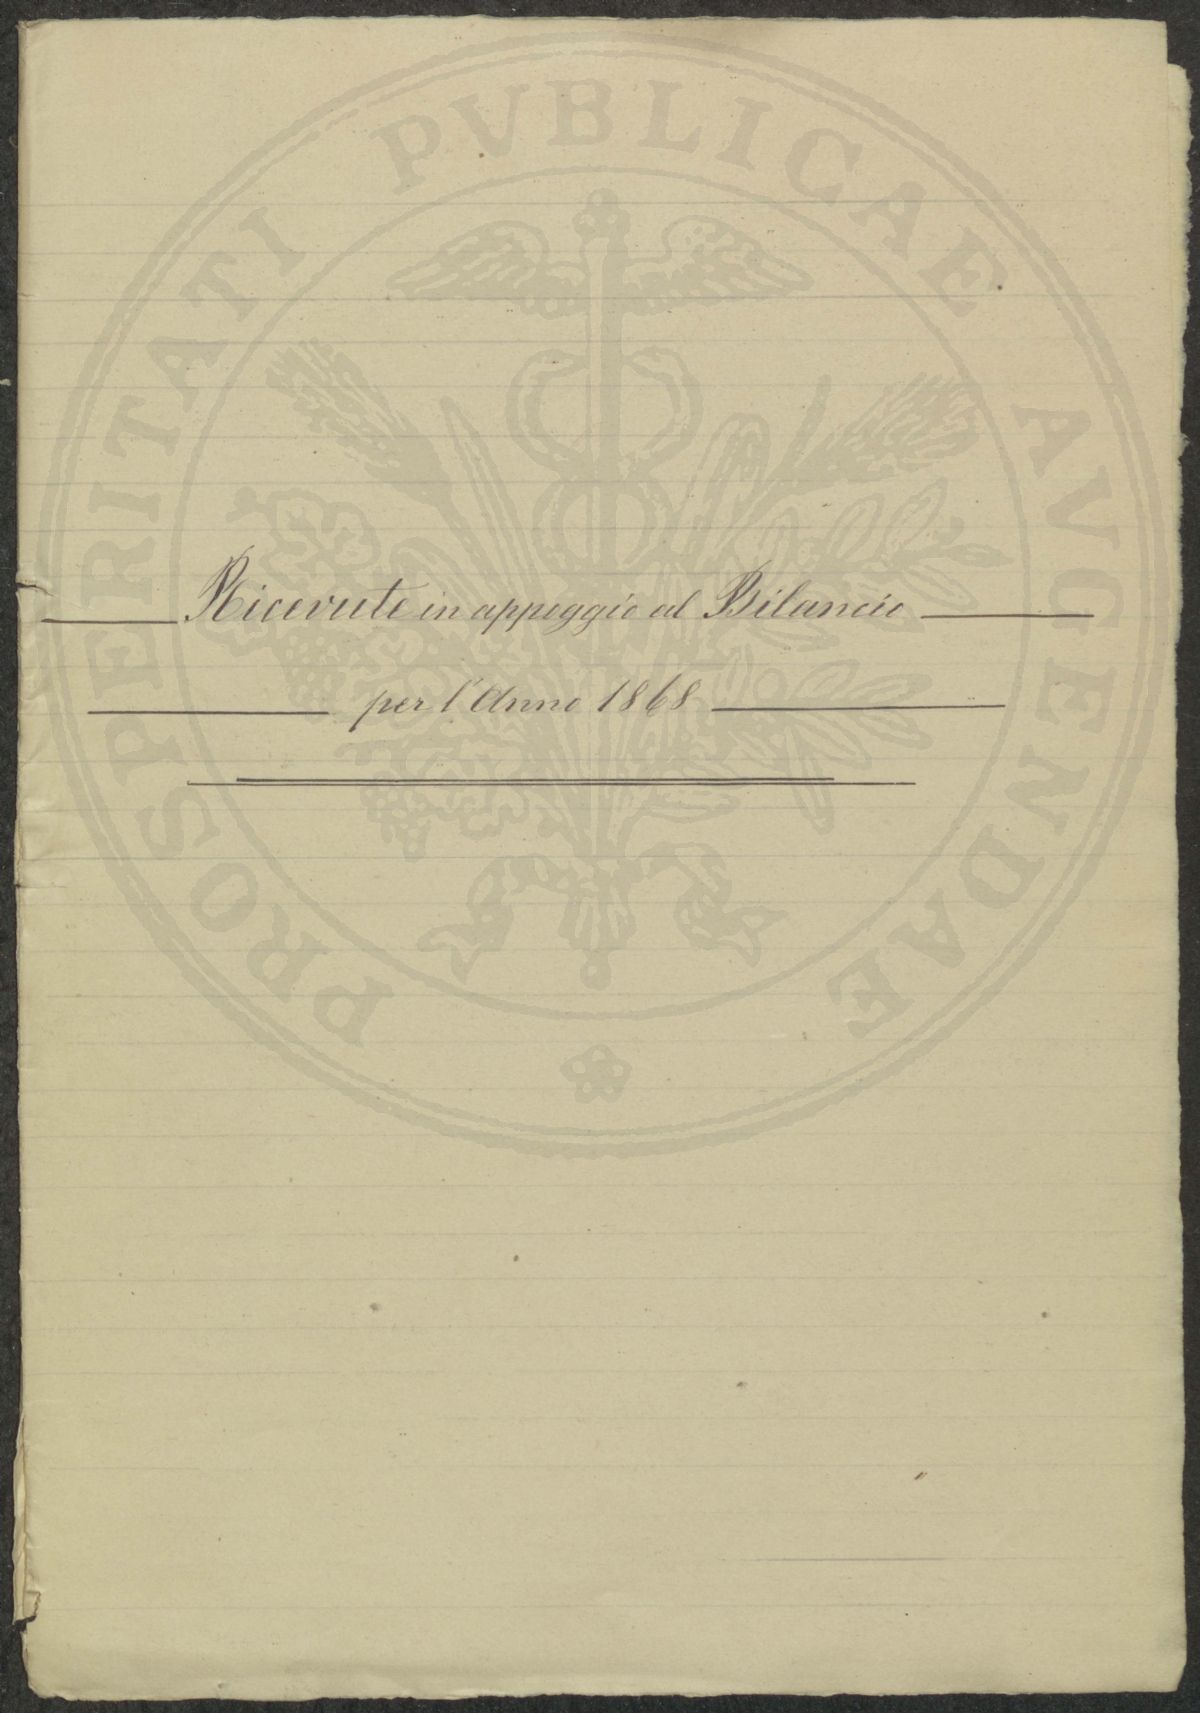 PROSPERITATI PVBLICAE AVGENDAE
Ricevute in appoggio al Bilancio
per l'Anno 1868